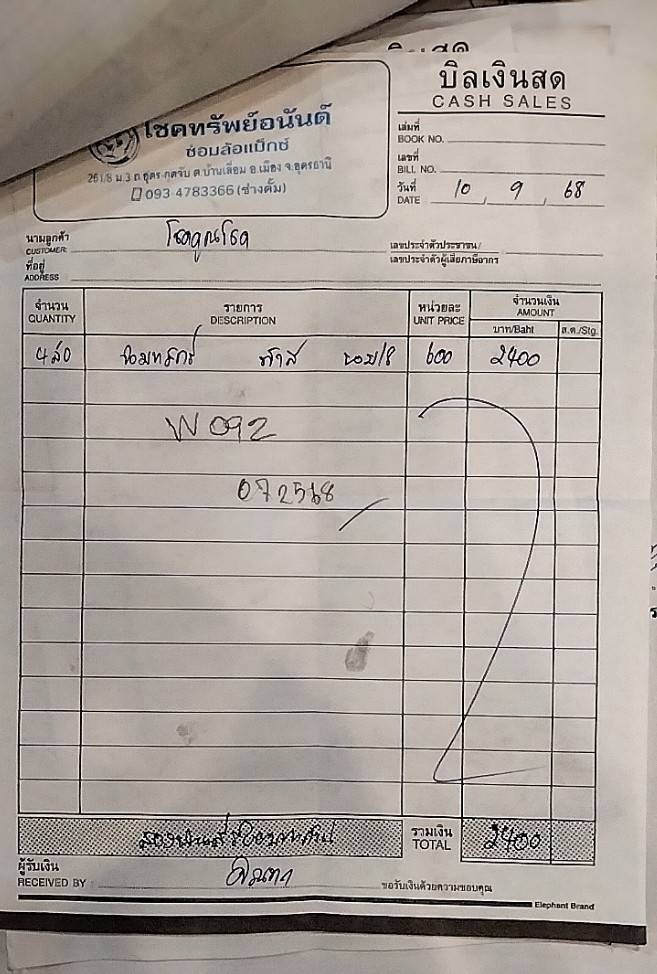 บิลเงินสด
CASH SALES
โชคทรัพย์อนันต์
ซ่อมล้อแม็กซ์
261/8 ม.3 ถ.อุดร-กุดจับ ต.บ้านเลื่อม อ.เมือง จ.อุดรธานี
093-4783366 (ช่างตั้ม)
เล่มที่
BOOK NO.
เลขที่
BILL NO.
วันที่ 10 9 68
DATE
นามลูกค้า
CUSTOMER
เลขประจำตัวประชาชน/
เลขประจำตัวผู้เสียภาษีอากร
ที่อยู่
ADDRESS
จำนวน รายการ หน่วยละ จำนวนเงิน
QUANTITY DESCRIPTION UNIT PRICE AMOUNT
บาท/Baht ส.ต./Stg.
600 2400
W092
072568
รวมเงิน 2400
TOTAL
สองพันสี่ร้อยบาทถ้วน
ผู้รับเงิน
RECEIVED BY
ขอรับเงินด้วยความขอบคุณ
Elephant Brand